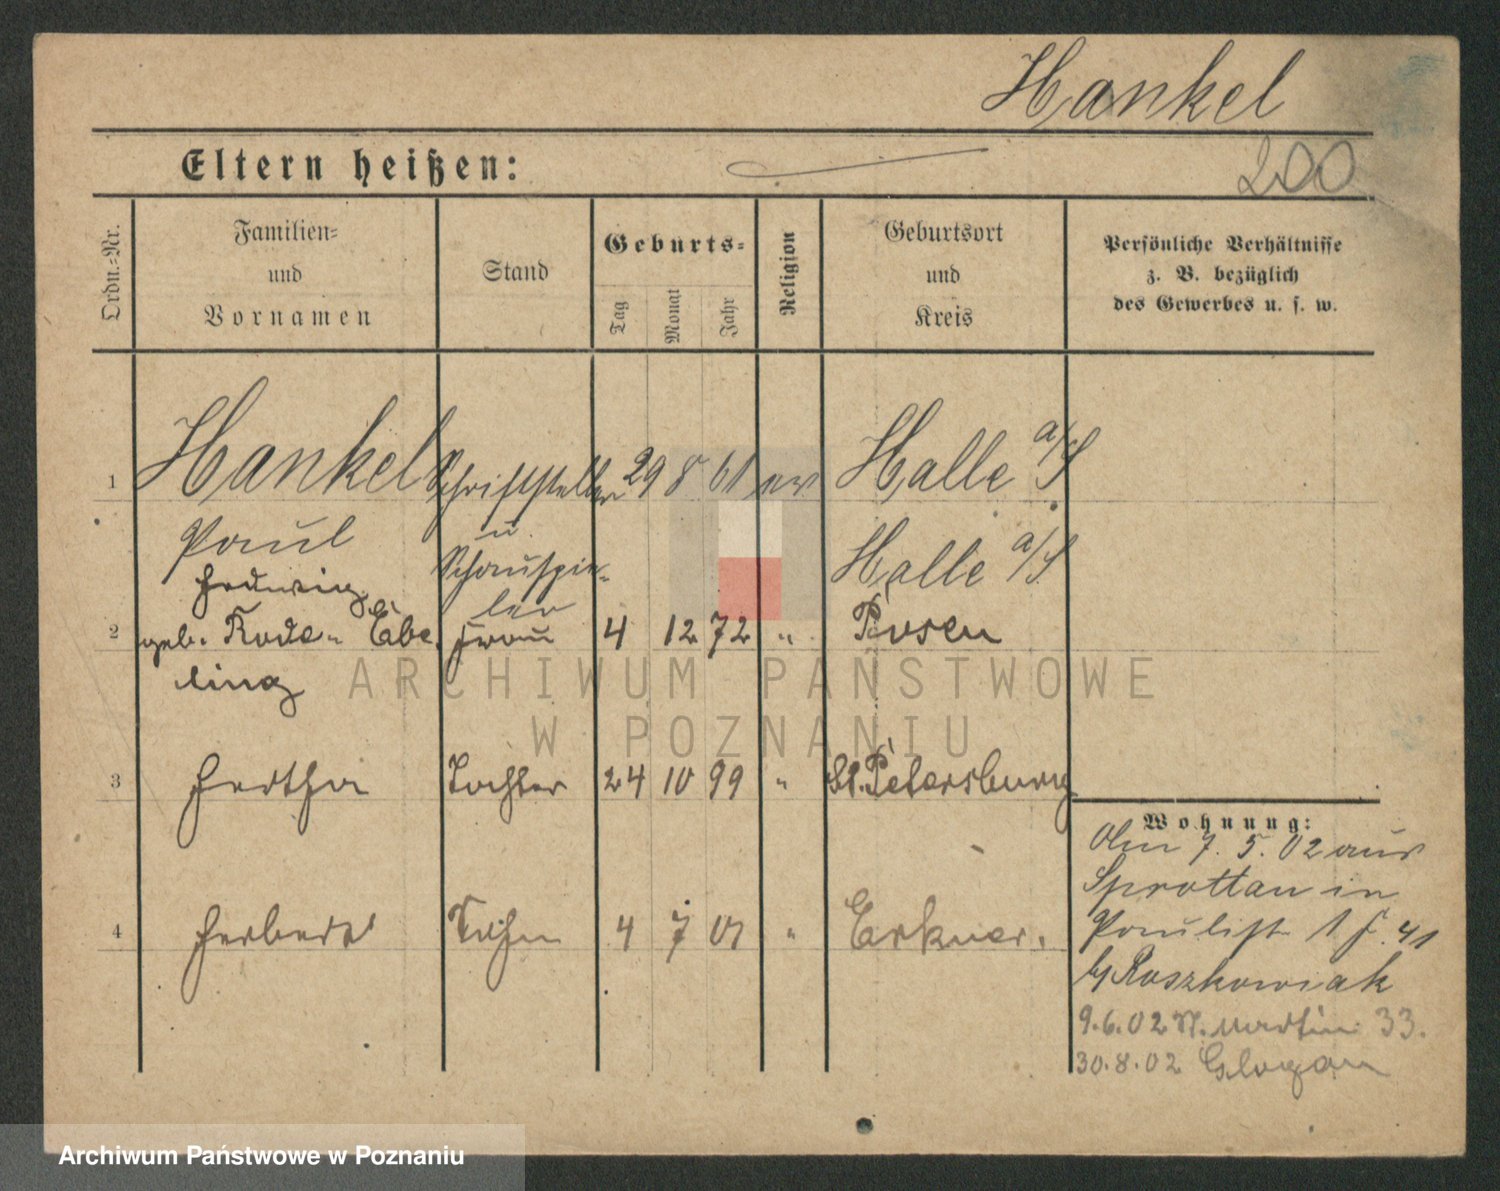 Hankel
200
Eltern heißen:
Ordn.-Nr.
Familien-
und
Vornamen
Stand
Geburts-
Tag
Monat
Jahr
Religion
Geburtsort
und
Kreis
Persönliche Verhältnisse
z. B. bezüglich
des Gewerbes u. s. w.
1 Hankel Schriftsteller 29 8 61 ev Halle a/S
Paul u. Schauspie- Halle a/S
Hedwig ler
2 geb. Rode- Ebe Frau 4 12 72 " Posen
ling
3 Hertha Tochter 24 10 99 " St. Petersburg
4 Herbert Sohn 4 7 01 " Erkner.
Wohnung:
Am 7. 5. 02 aus
Sprottau in
Paulist 1 41
b/ Roszkowiak
9.6.02 St. Martin 33.
30.8.02 Glogau
ARCHIWUM PAŃSTWOWE
W POZNANIU
Archiwum Państwowe w Poznaniu